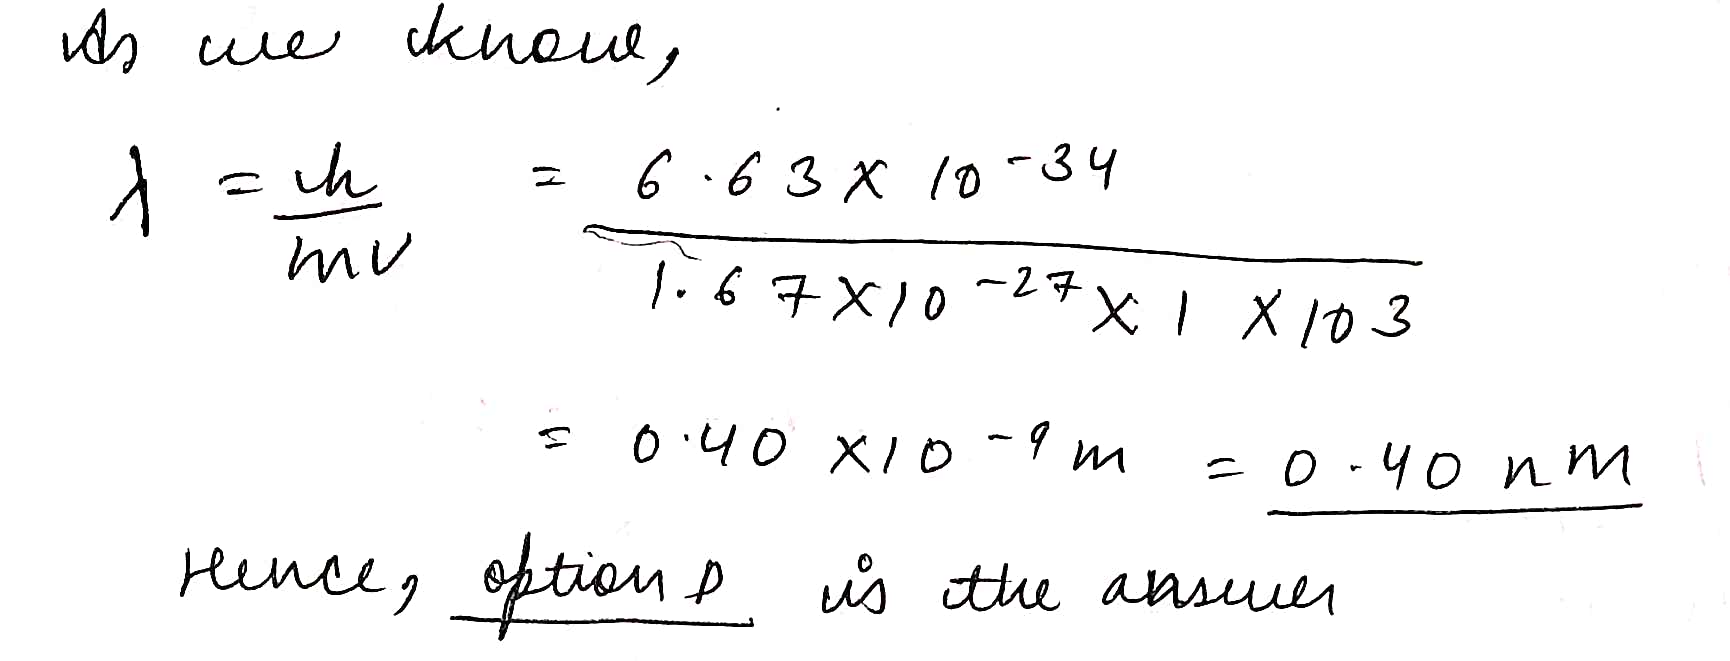 As we know,
λ = h/mv = 6.63 × 10^-34 / 1.67 × 10^-27 × 1 × 10^3
= 0.40 × 10^-9 m = 0.40 nm
Hence, option D is the answer